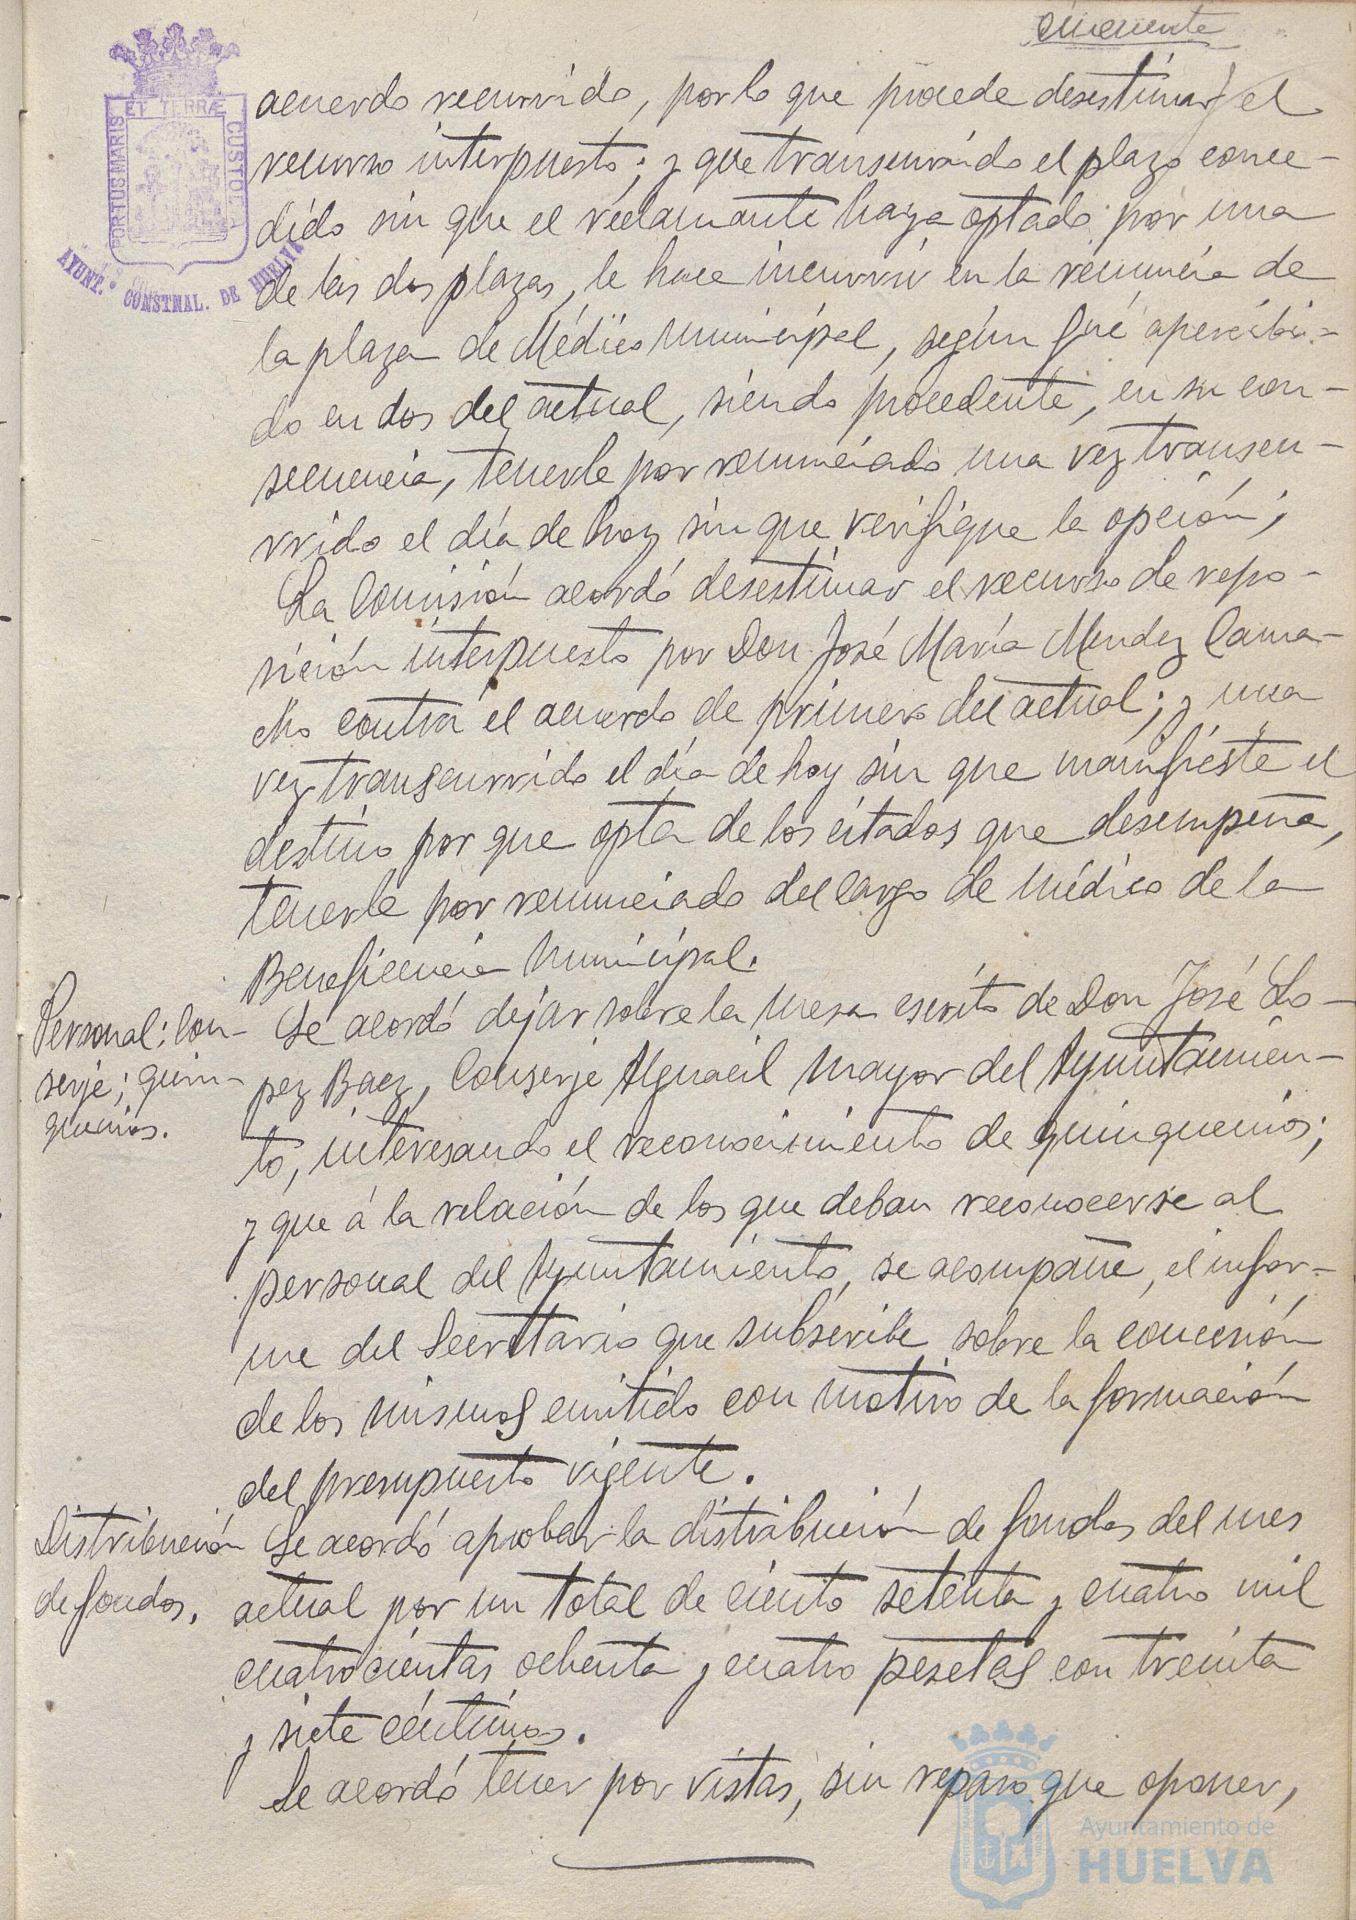 cincuenta
PORTUS MARIS ET TERRÆ CUSTODIA
AYUNT. CONSTNAL. DE HUELVA
acuerdo recurrido, por lo que procede desestimar el
recurso interpuesto; y que transcurrido el plazo conce-
dido sin que el reclamante haya optado por una
de las dos plazas, le hace incurrir en la renuncia de
la plaza de Médico Municipal, según fué apercibi-
do en dos del actual, siendo procedente, en su con-
secuencia, tenerle por renunciado una vez transcu-
rrido el día de hoy sin que verifique la opción;
La Comisión acordó desestimar el recurso de repo-
sición interpuesto por Don José María Mendez Cama-
cho contra el acuerdo de primero del actual; y una
vez transcurrido el día de hoy sin que manifieste el
destino por que opta de los citados que desempeña,
tenerle por renunciado del cargo de Médico de la
Beneficencia Municipal.
Personal: Con-
serje; quin-
quenios.
Se acordó dejar sobre la mesa escrito de Don José Lo-
pez Baez, Conserje Alguacil Mayor del Ayuntamien-
to, interesando el reconocimiento de quinquenios;
y que á la relación de los que deban reconocerse al
personal del Ayuntamiento, se acompañe, el infor-
me del Secretario que subscribe sobre la concesión
de los mismos emitido con motivo de la formación
del presupuesto vigente.
Distribución
de fondos.
Se acordó aprobar la distribución de fondos del mes
actual por un total de ciento setenta y cuatro mil
cuatrocientas ochenta y cuatro pesetas con treinta
y siete céntimos.
Se acordó tener por vistas, sin reparo que oponer,
Ayuntamiento de
HUELVA